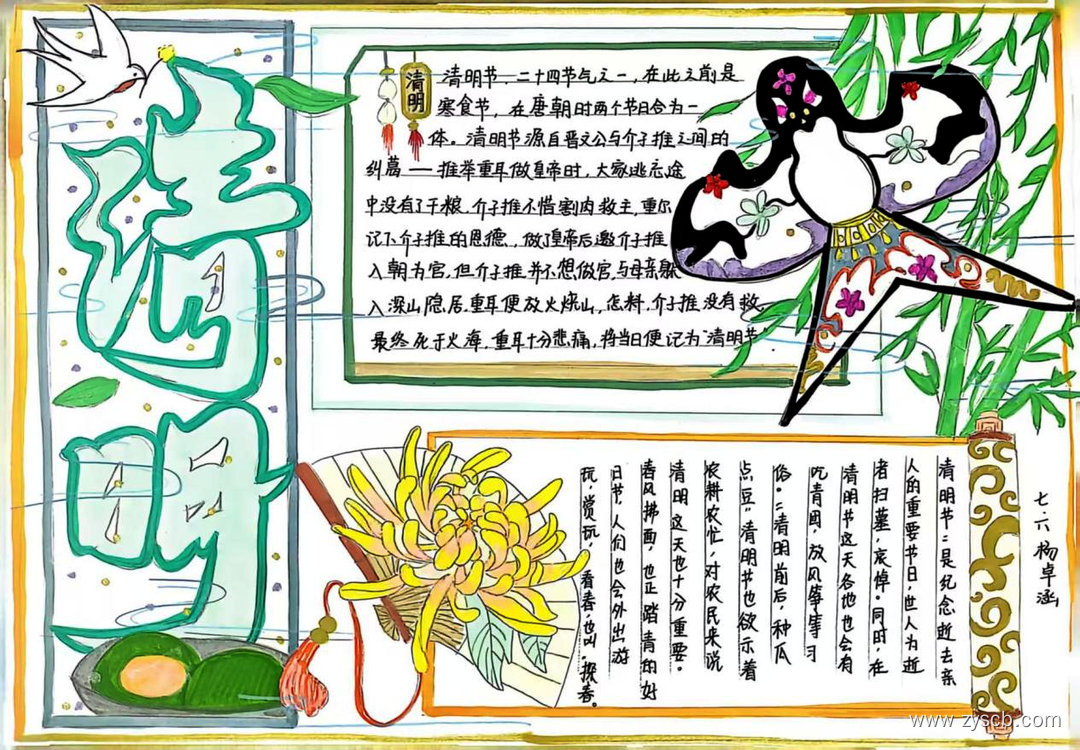 清明
清明
清明节—二十四节气之一，在此之前是
寒食节，在唐朝时两个节日合为一
体。清明节源自晋文公与介子推之间的
纠葛——推举重耳做皇帝时，大家逃亡途
中没有了干粮，介子推不惜割肉救主，重尔
记下介子推的恩德，做了皇帝后邀介子推
入朝为官，但介子推并不想做官，与母亲躲
入深山隐居，重耳便放火烧山，怎料，介子推没有救，
最终死于火海，重耳十分悲痛，将当日便记为"清明节"
清明节：是纪念逝去亲
人的重要节日，世人为逝
者扫墓，哀悼。同时，在
清明节这天各地也会有
吃青团，放风筝等习
俗。"清明前后，种瓜
点豆"，清明节也欲示着
农耕农忙，对农民来说
清明这天也十分重要。
春风拂面，也正踏青的好
日节，人们也会外出游
玩，赏玩，看春，也叫，探春。
七.六 杨卓涵
www.zyscb.com